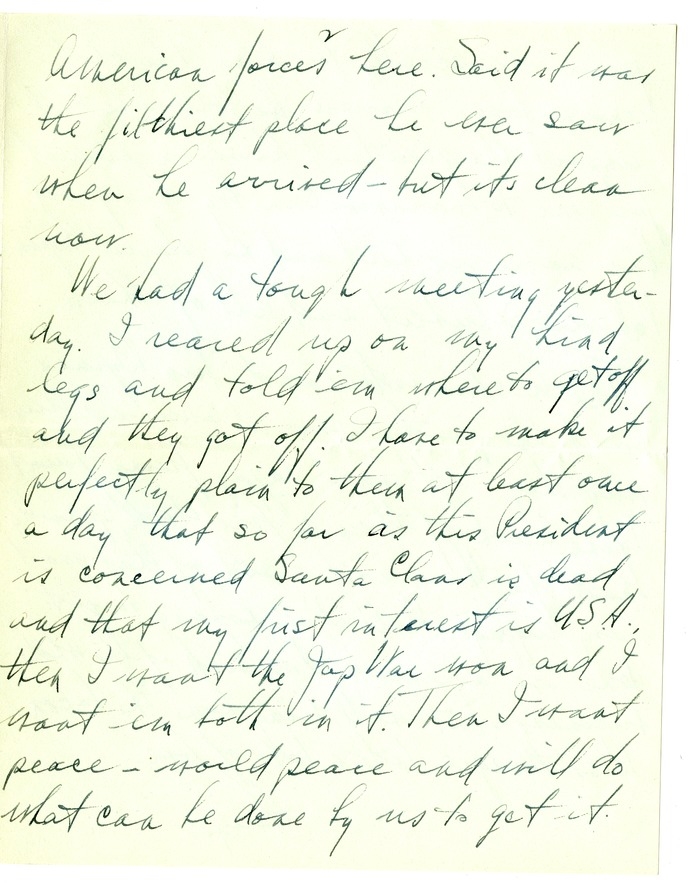 American forces here. Said it was
the filthiest place he ever saw
when he arrived – but its clean
now.
We had a tough meeting yester-
day. I reared up on my hind
legs and told 'em where to get off
and they got off. I have to make it
perfectly plain to them at least once
a day that so far as this President
is concerned Santa Claus is dead
and that my first interest is U.S.A.,
then I want the Jap War won and I
want 'em both in it. Then I want
peace – world peace and will do
what can be done by us to get it.